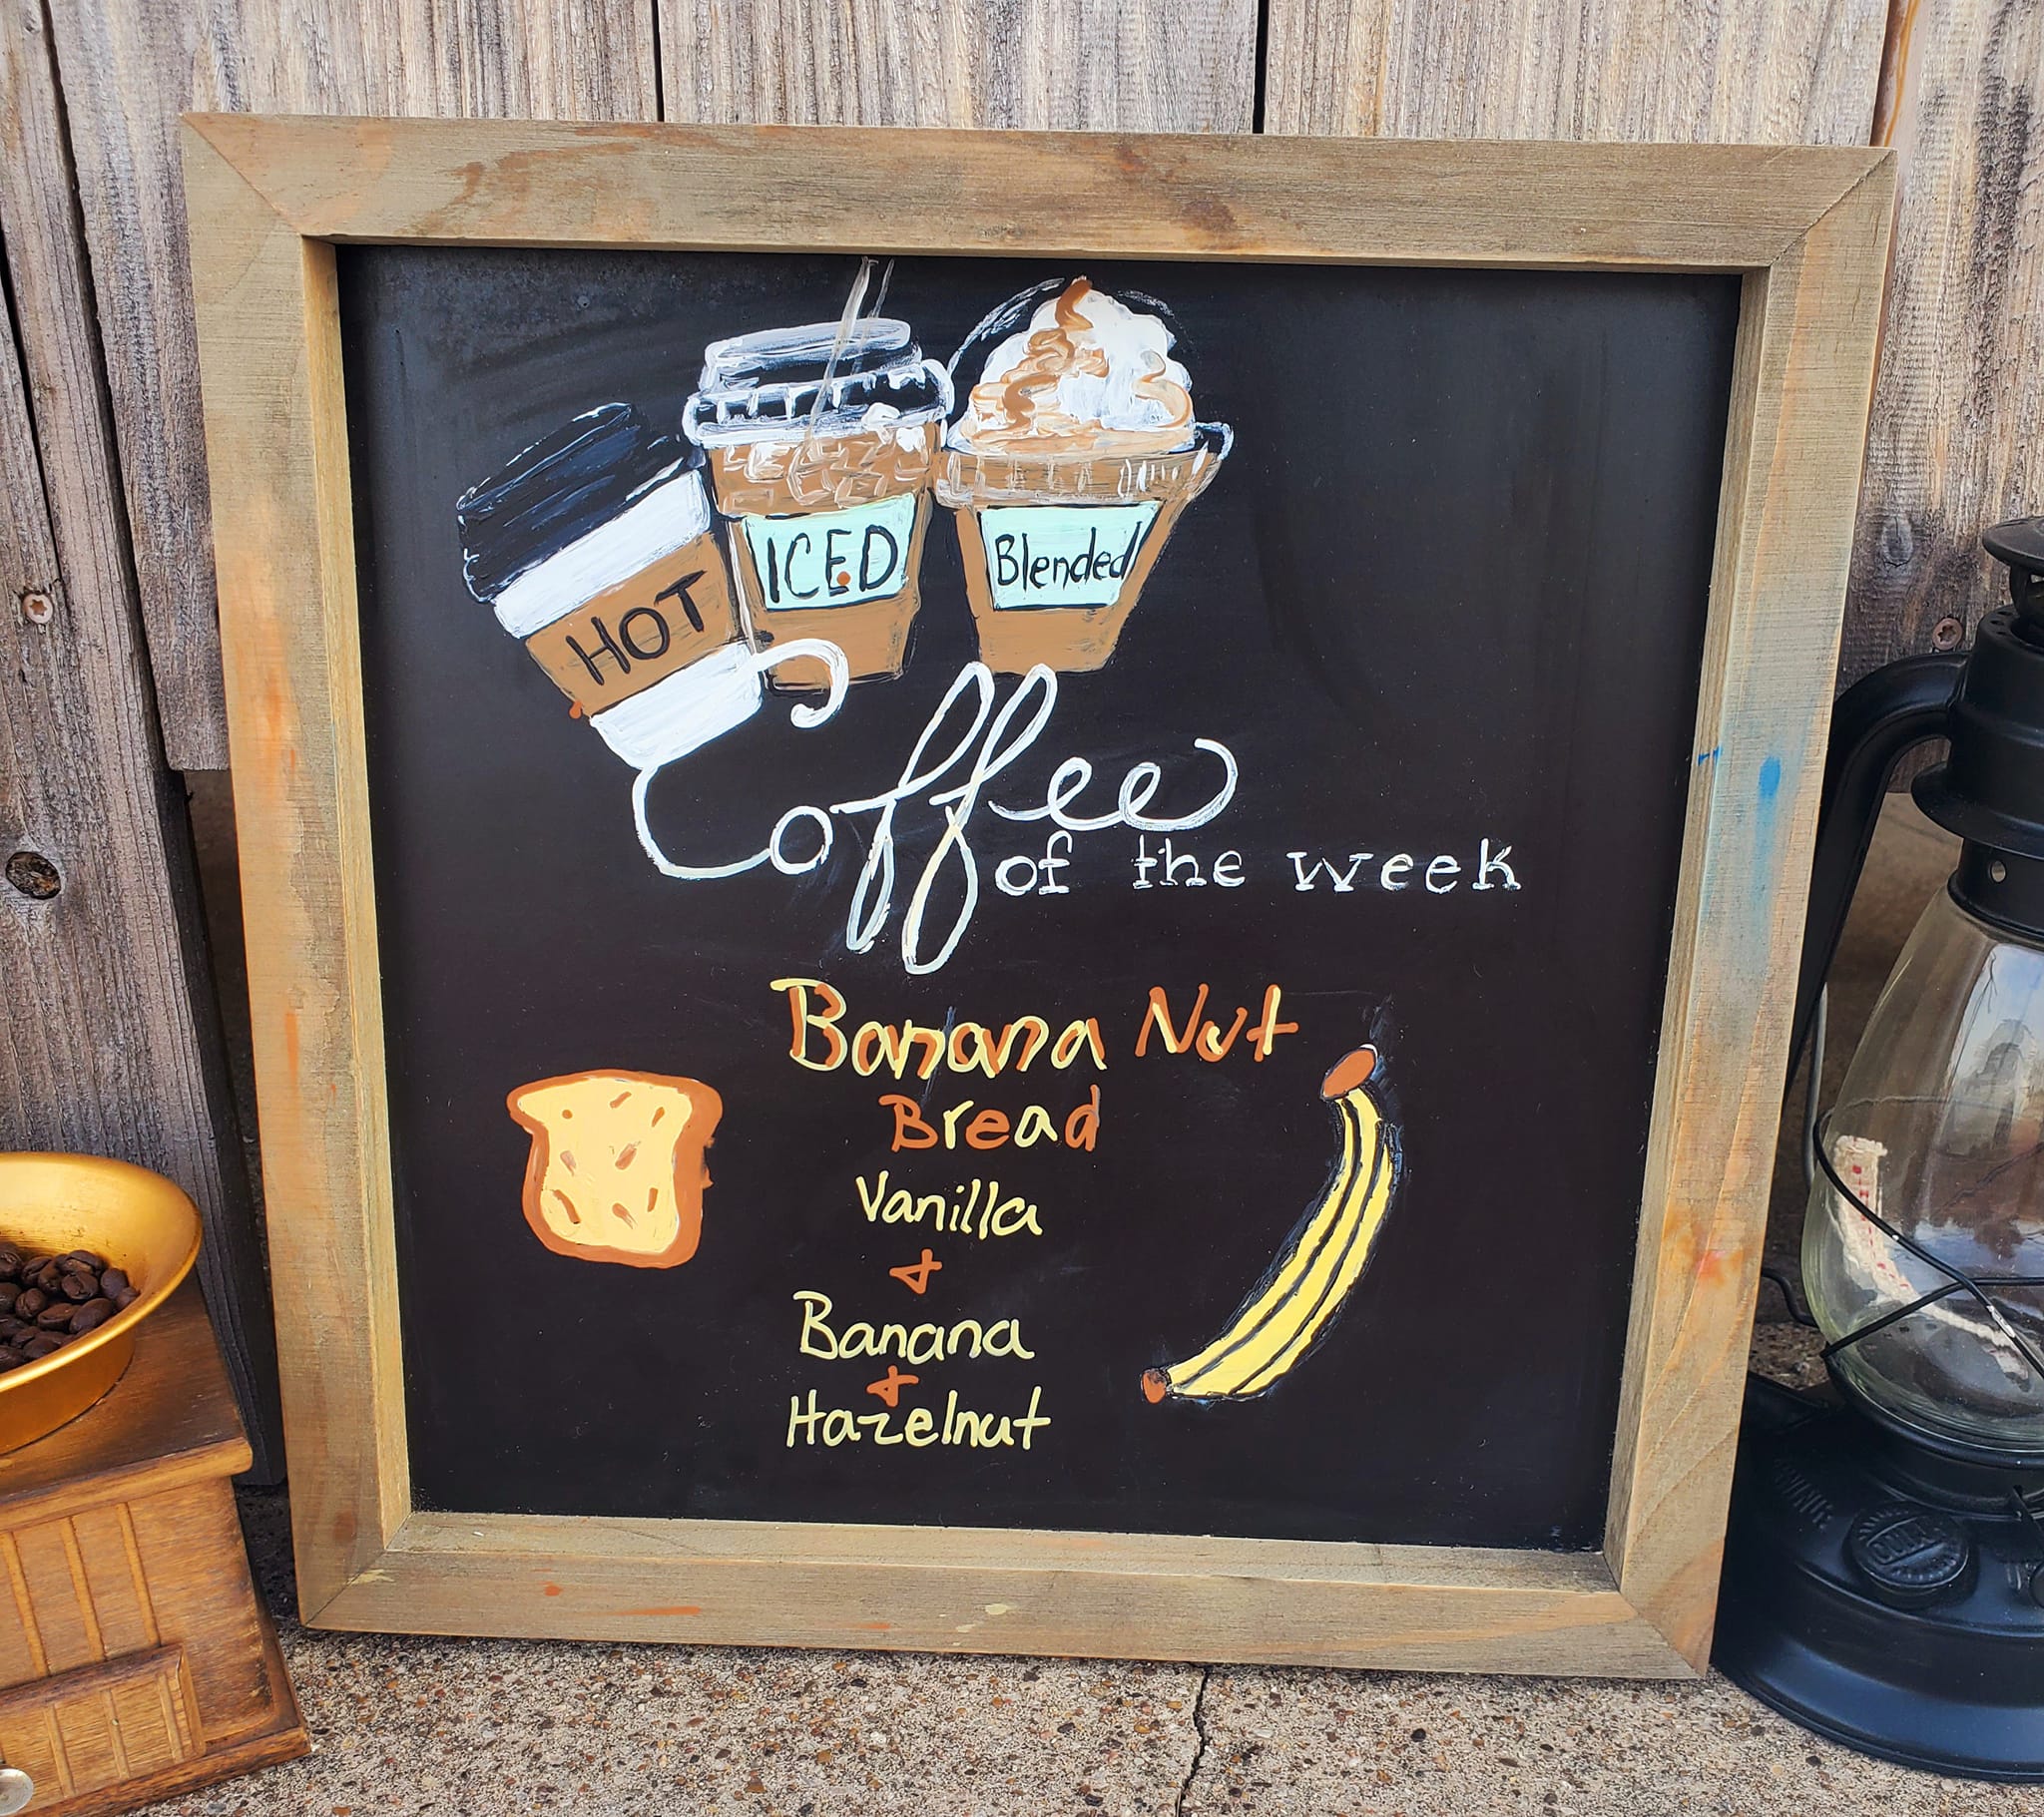 HOT
ICED
Blended
Coffee
of the week
Banana Nut
Bread
Vanilla
+
Banana
+
Hazelnut